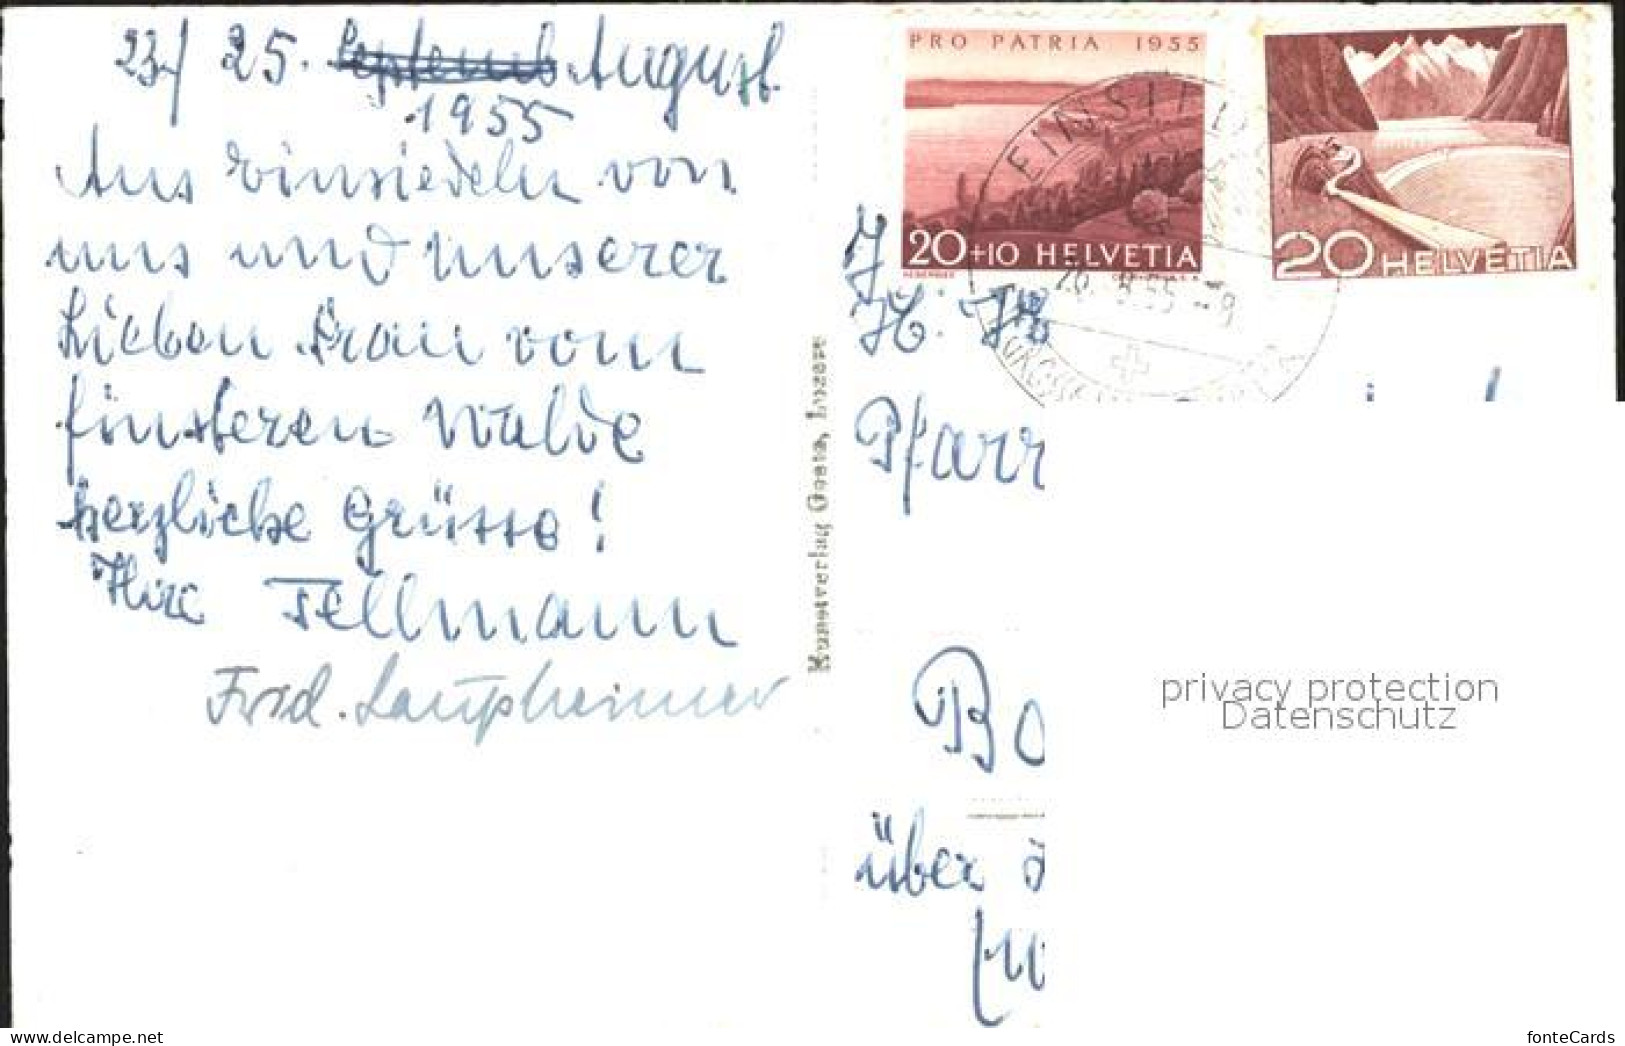 23./25. Septemb August
1955
Aus Einsiedeln von
uns und unserer
Lieben Frau vom
finsteren Walde
herzliche Grüsse!
Ihre Tellmann
Frid. Laupheimer
Kunstverlag Goetz, Luzern
PRO PATRIA 1955
20+10 HELVETIA
20 HELVETIA
EINSIEDEL
26. 8.55 - 9
H. H.
Pfarr
Bo
über
privacy protection
Datenschutz
www.delcampe.net
fonteCards